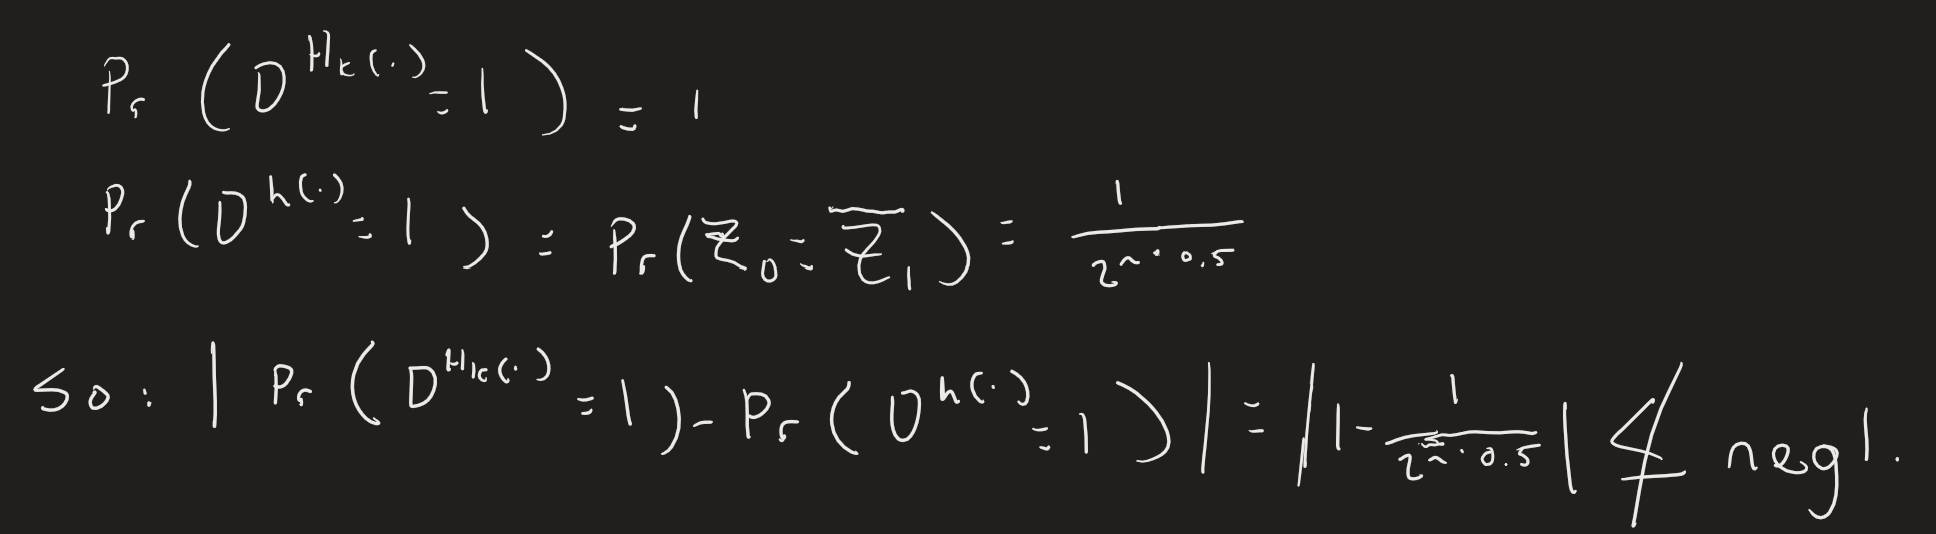 Pr (D^{H_k(·)} = 1) = 1
Pr (D^{h(·)} = 1) = Pr(z_0 = \overline{z_1}) = \frac{1}{2^{n · 0.5}}
So: | Pr (D^{H_k(·)} = 1) - Pr (D^{h(·)} = 1) | = | 1 - \frac{1}{2^{n · 0.5}} | ≰ negl.